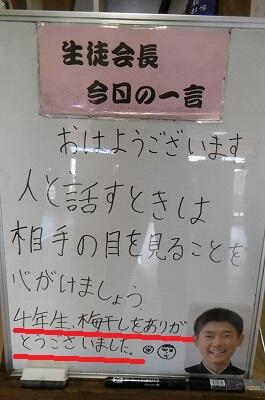 生徒会長
今日の一言
おはようございます
人と話すときは
相手の目を見ることを
心がけましょう
4年生、梅干しをありが
とうございました。